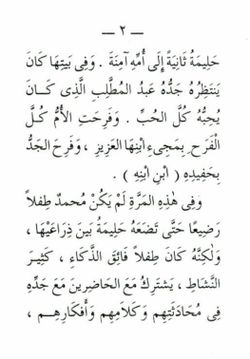 — ٢ —
حَلِيمَةُ ثَانِيَةً إِلَى أُمِّهِ آمِنَةَ . وَفِى بَيْتِهَا كَانَ
يَنْتَظِرُهُ جَدُّهُ عَبْدُ الْمُطَّلِبِ الَّذِى كَـانَ
يُحِبُّهُ كُلَّ الْحُبِّ . وَفَرِحَتِ الْأُمُّ كُـلَّ
الْفَرَحِ بِمَجِىءِ ابْنِهَا الْعَزِيزِ ، وَفَرِحَ الْجَدُّ
بِحَفِيدِهِ ( ابْنِ ابْنِهِ ) .
وَفِى هٰذِهِ الْمَرَّةِ لَمْ يَكُنْ مُحَمَّدٌ طِفْلاً
رَضِيعًا حَتَّى تَضَعَهُ حَلِيمَةُ بَيْنَ ذِرَاعَيْهَا ،
وَلٰكِنَّهُ كَانَ طِفْلاً فَائِقَ الذَّكَاءِ ، كَثِيرَ
النَّشَاطِ ، يَشْتَرِكُ مَعَ الْحَاضِرِينَ مَعَ جَدِّهِ
فِى مُحَادَثَتِهِم وَكَلَامِهِم وَأَفْكَارِهِـم ،